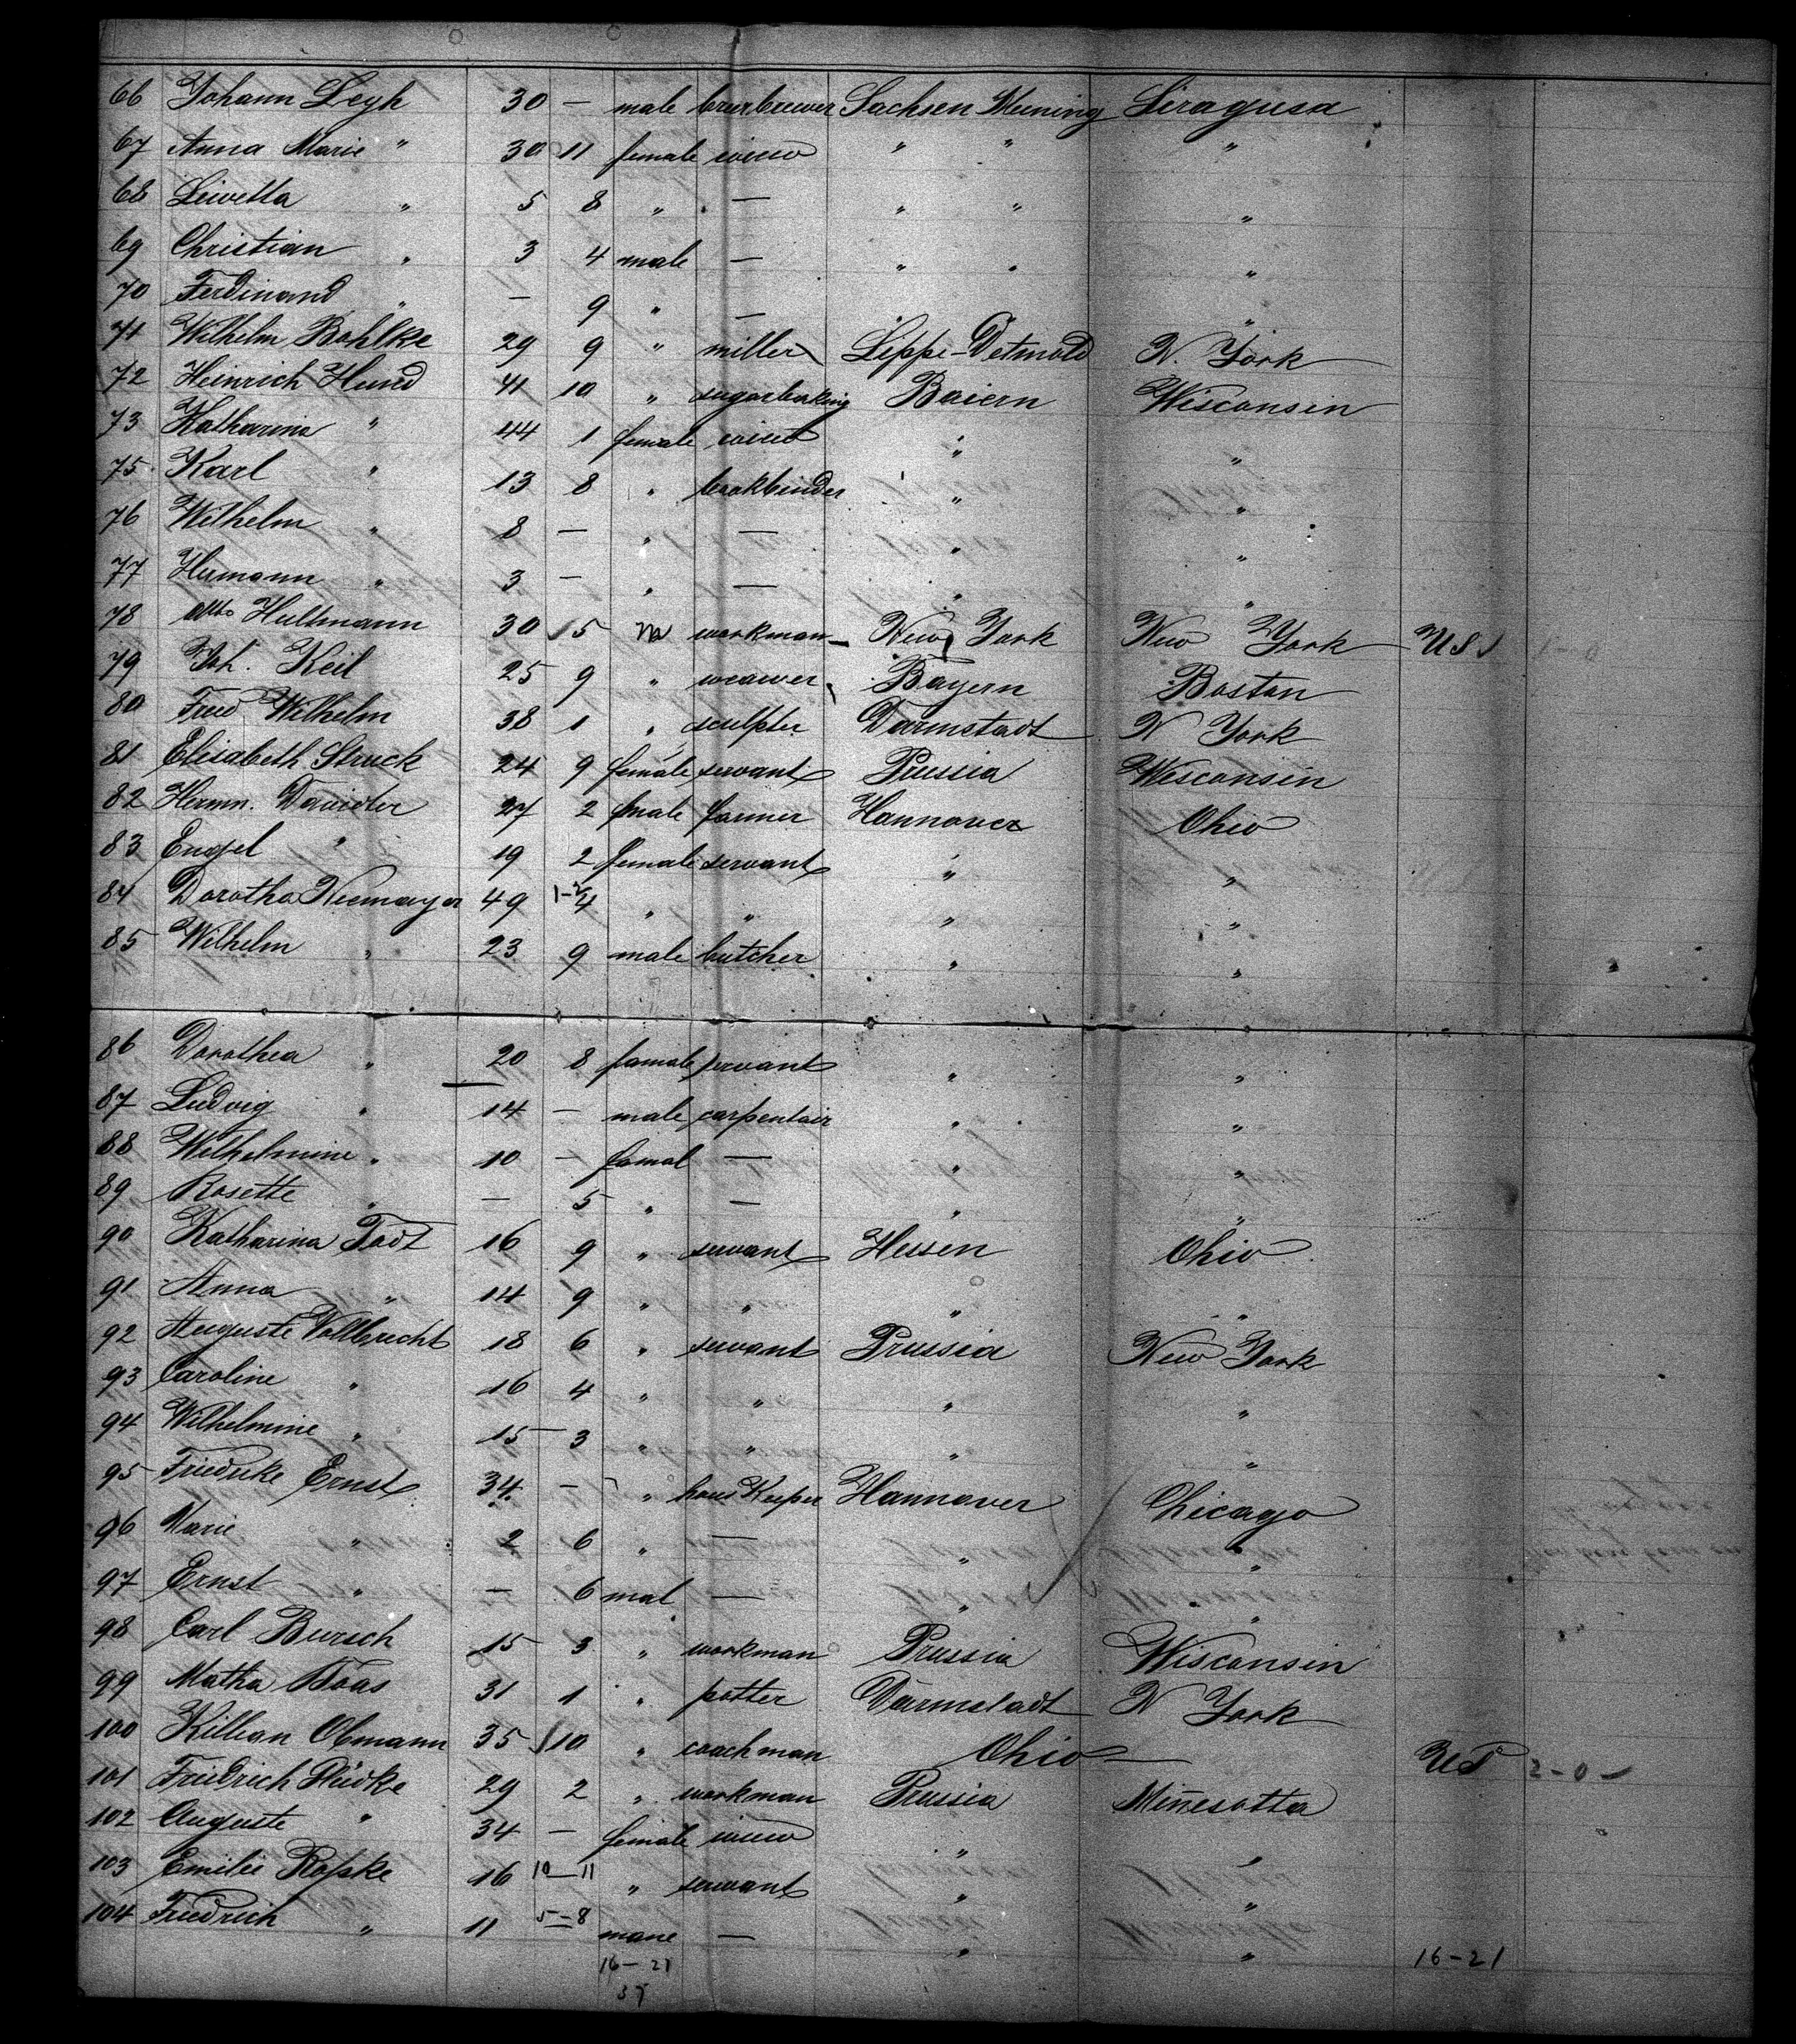 66 Johann Leyh 30 — male Sachsen Meining Siragusa
67 Anna Marie " 30 11 female " " "
68 " 5 8 " — " " "
69 Christian " 3 4 male — " " "
70 Ferdinand " — 9 " — "
71 Wilhelm Bohlke 29 9 " miller Lippe-Detmold N. York
72 Heinrich Hund 41 10 " Baiern Wisconsin
73 Katharina " 44 1 female " "
75 Karl " 13 8 " " "
76 Wilhelm " 8 — " — " "
77 Hermann " 3 — " — " "
78 Otto Hultmann 30 5 workman New York New York US
79 Joh. Keil 25 9 " weawer Bayern Boston
80 Wilhelm 38 1 " sculpter Darmstadt N York
81 Elisabeth Struck 24 9 female servant Prussia Wisconsin
82 Hermn. 27 2 male farmer Hannover Ohio
83 Engel " 19 2 female servant " "
84 Dorotha Niemayer 49 4 " " " "
85 Wilhelm " 23 9 male butcher " "
86 Dorothea " 20 8 famale servant " "
87 Ludvig " 14 — male carpentair " "
88 Wilhelmine " 10 — famal — " "
89 Rosette " — 5 " — " "
90 Katharina Todt 16 9 " servant Hessen Ohio
91 Anna " 14 9 " " " "
92 Auguste Vollbrecht 18 6 " servant Prussia New York
93 Caroline " 16 4 " " " "
94 Wilhelmine " 15 3 " " " "
95 Friedrike Ernst 34 — " Hannover Chicago
96 Marie " 2 6 " — " "
97 Ernst " — 6 mal — " "
98 Carl Bursch 15 3 " workman Prussia Wisconsin
99 Matha 31 1 " potter Darmstadt N York
100 Killian Obmann 35 10 " coachman Ohio — US 2-0-
101 Friedrich 29 2 " workman Prussia Minesotta
102 Auguste " 34 — female " "
103 Emilie Ropke 16 10-11 " servant " "
104 Friedrich " 11 5-8 — " "
16-21 16-21
37